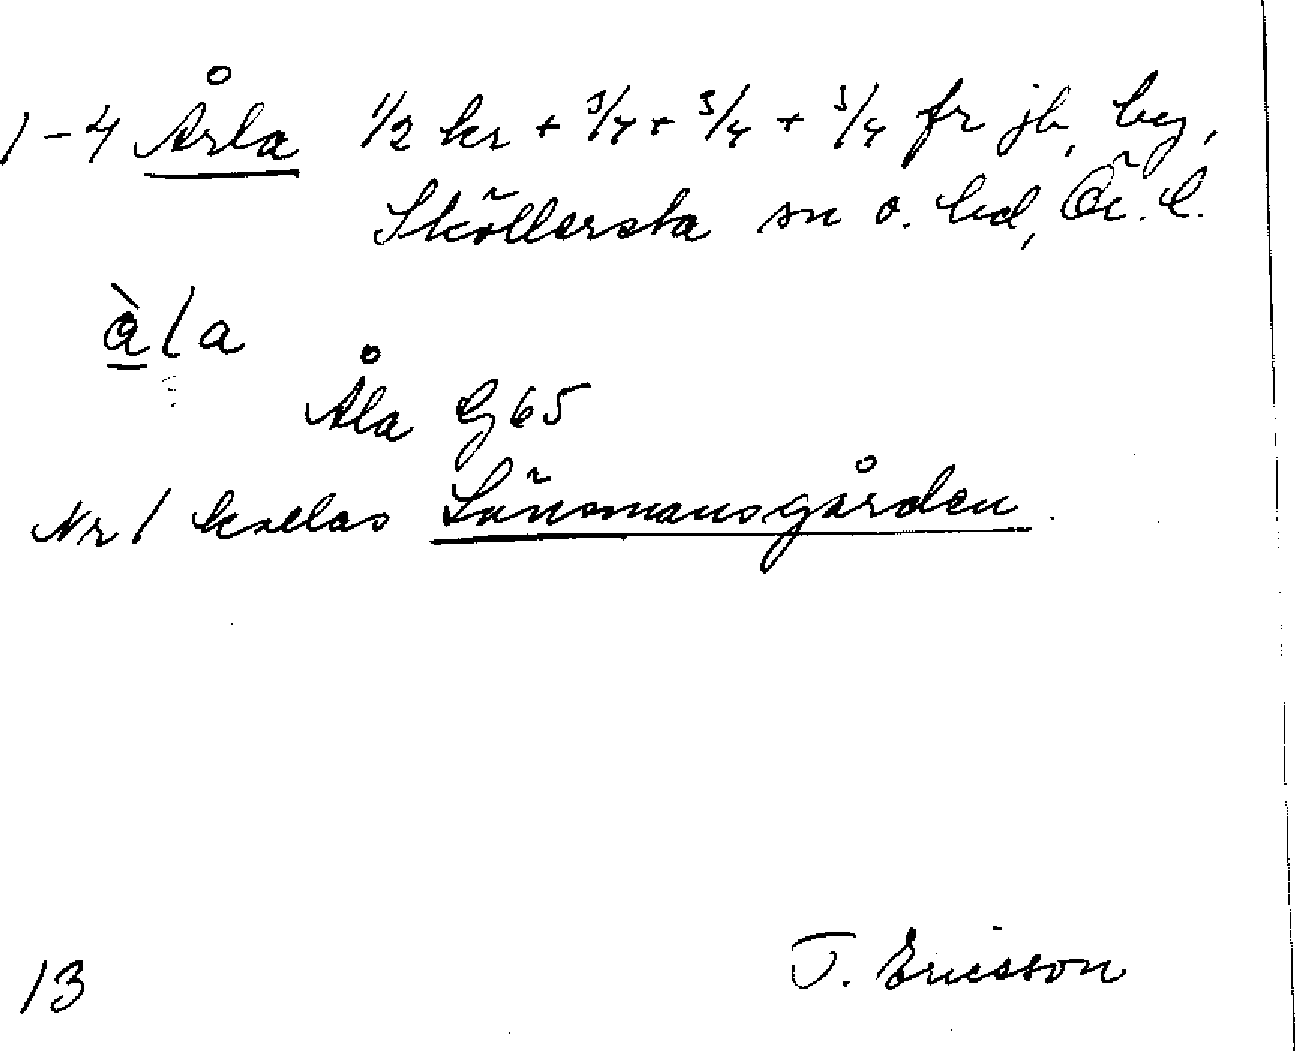 1-4 Årla 1/2 kr + 3/4 + 3/4 + 3/4 fr jb, by,
Sköllersta sn o. hd, Ör. l.
àla
Åla G 65
Nr 1 kallas Länsmansgården.
13 T. Ericsson